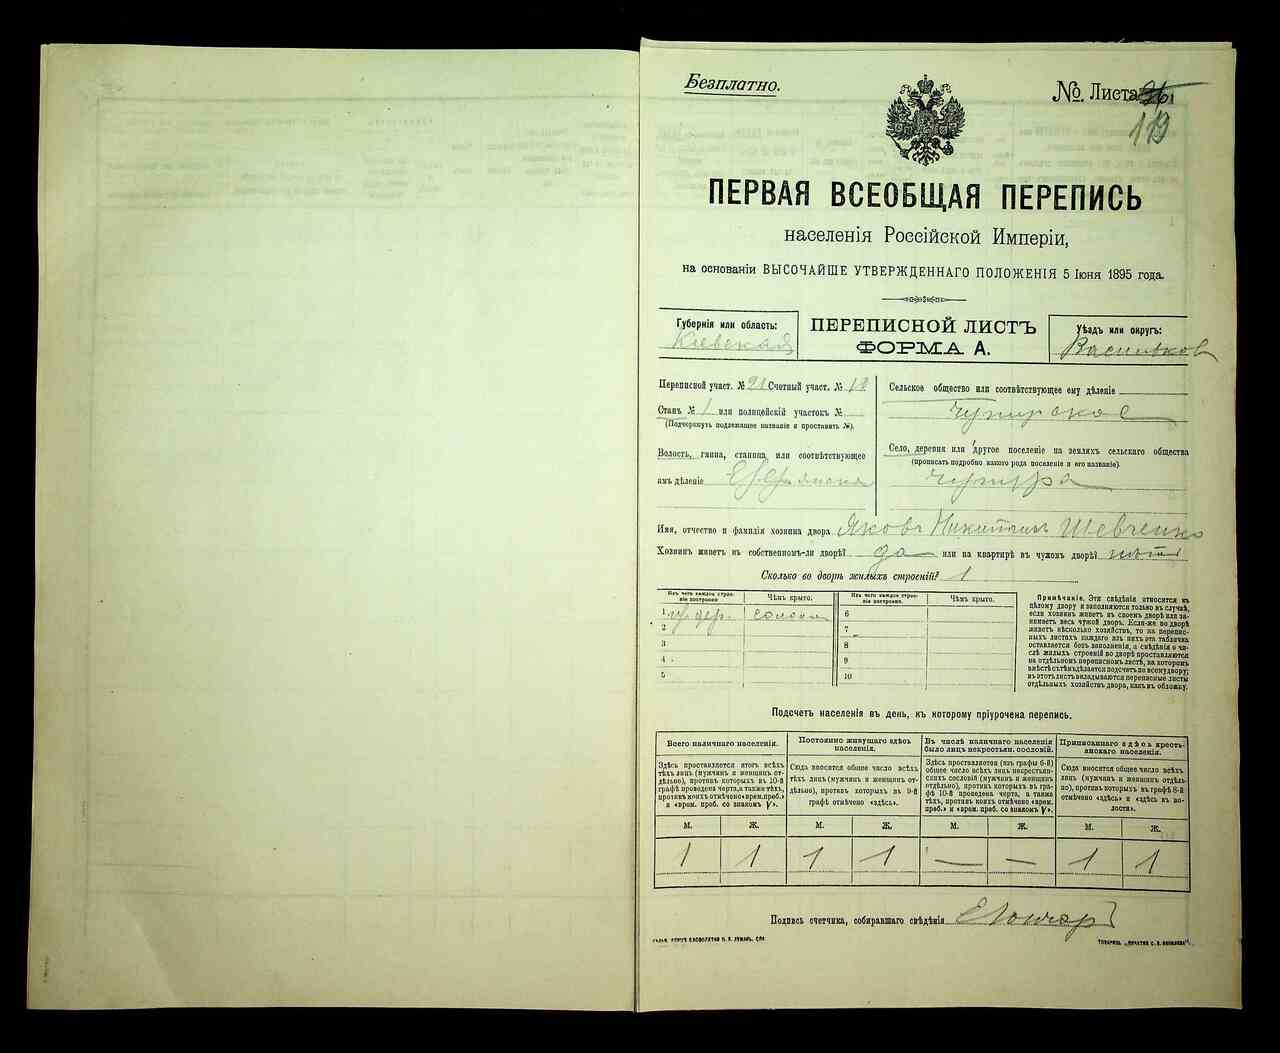 Безплатно.
№ Листа
119
ПЕРВАЯ ВСЕОБЩАЯ ПЕРЕПИСЬ
населенія Россійской Имперіи,
на основаніи ВЫСОЧАЙШЕ УТВЕРЖДЕННАГО ПОЛОЖЕНІЯ 5 Іюня 1895 года.
Губернія или область:
Кіевская
ПЕРЕПИСНОЙ ЛИСТЪ
ФОРМА А.
Уѣздъ или округъ:
Васильков
Переписной участ. № 21 Счетный участ. № 18
Станъ № 1 или полицейскій участокъ №
(Подчеркнуть подлежащее названіе и проставить №).
Волость, гмина, станица, или соотвѣтствующее
имъ дѣленіе
Сельское общество или соотвѣтствующее ему дѣленіе
Чупирское
Село, деревня или другое поселеніе на земляхъ сельскаго общества
(прописать подробно какого рода поселеніе и его названіе).
Чупыра
Имя, отчество и фамилія хозяина двора Яковъ Никитинъ Шевченко
Хозяинъ живетъ въ собственномъ-ли дворѣ? да или на квартирѣ въ чужомъ дворѣ? нѣтъ
Сколько во дворѣ жилыхъ строеній? 1
Изъ чего каждое строеніе построено.
Чѣмъ крыто.
Изъ чего каждое строеніе построено.
Чѣмъ крыто.
1 дер. солома 6
2 7
3 8
4 9
5 10
Примѣчаніе. Эти свѣдѣнія относятся къ
цѣлому двору и заполняются только въ случаѣ,
если хозяинъ живетъ въ своемъ дворѣ или занимаетъ
весь чужой дворъ. Если-же во дворѣ
живетъ нѣсколько хозяйствъ, то на переписныхъ
листахъ каждаго изъ нихъ эта табличка
оставляется безъ заполненія, а свѣдѣнія о числѣ
жилыхъ строеній во дворѣ проставляются
на отдѣльномъ переписномъ листѣ, на которомъ
вмѣстѣ съ тѣмъ дѣлается подсчетъ по всему двору;
въ этотъ листъ вкладываются переписные листы
отдѣльныхъ хозяйствъ двора, какъ въ обложку.
Подсчетъ населенія въ день, къ которому пріурочена перепись.
Всего наличнаго населенія.
Здѣсь проставляется итогъ всѣхъ
тѣхъ лицъ (мужчинъ и женщинъ отдѣльно),
противъ которыхъ въ 10-й
графѣ проведена черта, а также тѣхъ,
противъ коихъ отмѣчено «врем. преб.»
и «врем. преб. со знакомъ V».
Постоянно живущаго здѣсь
населенія.
Сюда вносится общее число всѣхъ
тѣхъ лицъ (мужчинъ и женщинъ отдѣльно),
противъ которыхъ въ 9-й
графѣ отмѣчено «здѣсь».
Въ числѣ наличнаго населенія
было лицъ некрестьян. сословій.
Здѣсь проставляется (изъ графы 6-й)
общее число всѣхъ лицъ некрестьянскихъ
сословій (мужчинъ и женщинъ
отдѣльно), противъ которыхъ въ графѣ
10-й проведена черта, а также
тѣхъ, противъ коихъ отмѣчено «врем.
преб.» и «врем. преб. со знакомъ V».
Приписаннаго здѣсь крестьянскаго
населенія.
Сюда вносится общее число всѣхъ
лицъ (мужчинъ и женщинъ отдѣльно),
противъ которыхъ въ графѣ 8-й
отмѣчено «здѣсь» и «здѣсь въ волости».
М. Ж. М. Ж. М. Ж. М. Ж.
1 1 1 1 — — 1 1
Подпись счетчика, собиравшаго свѣдѣнія